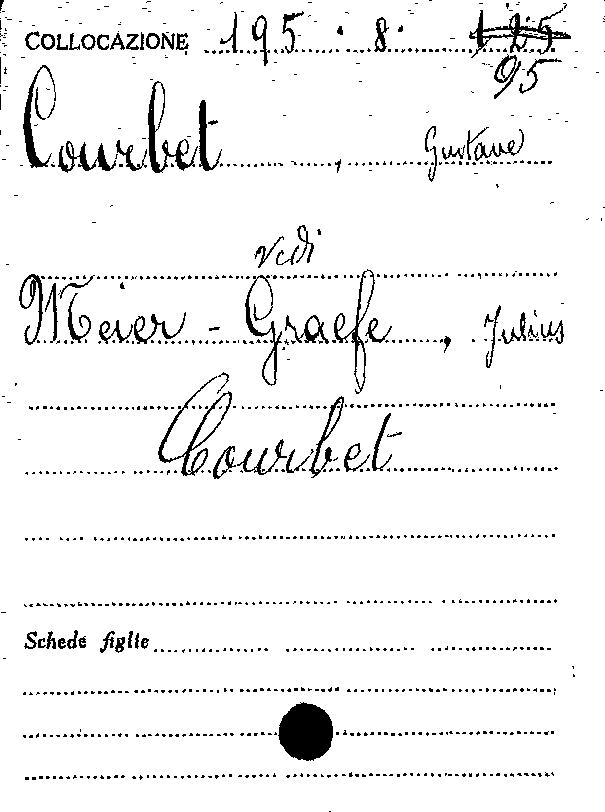 COLLOCAZIONE 195 · 8 · 125
95
Courbet , Gustave
vedi
Meier - Graefe , Julius
Courbet
Schede figlie